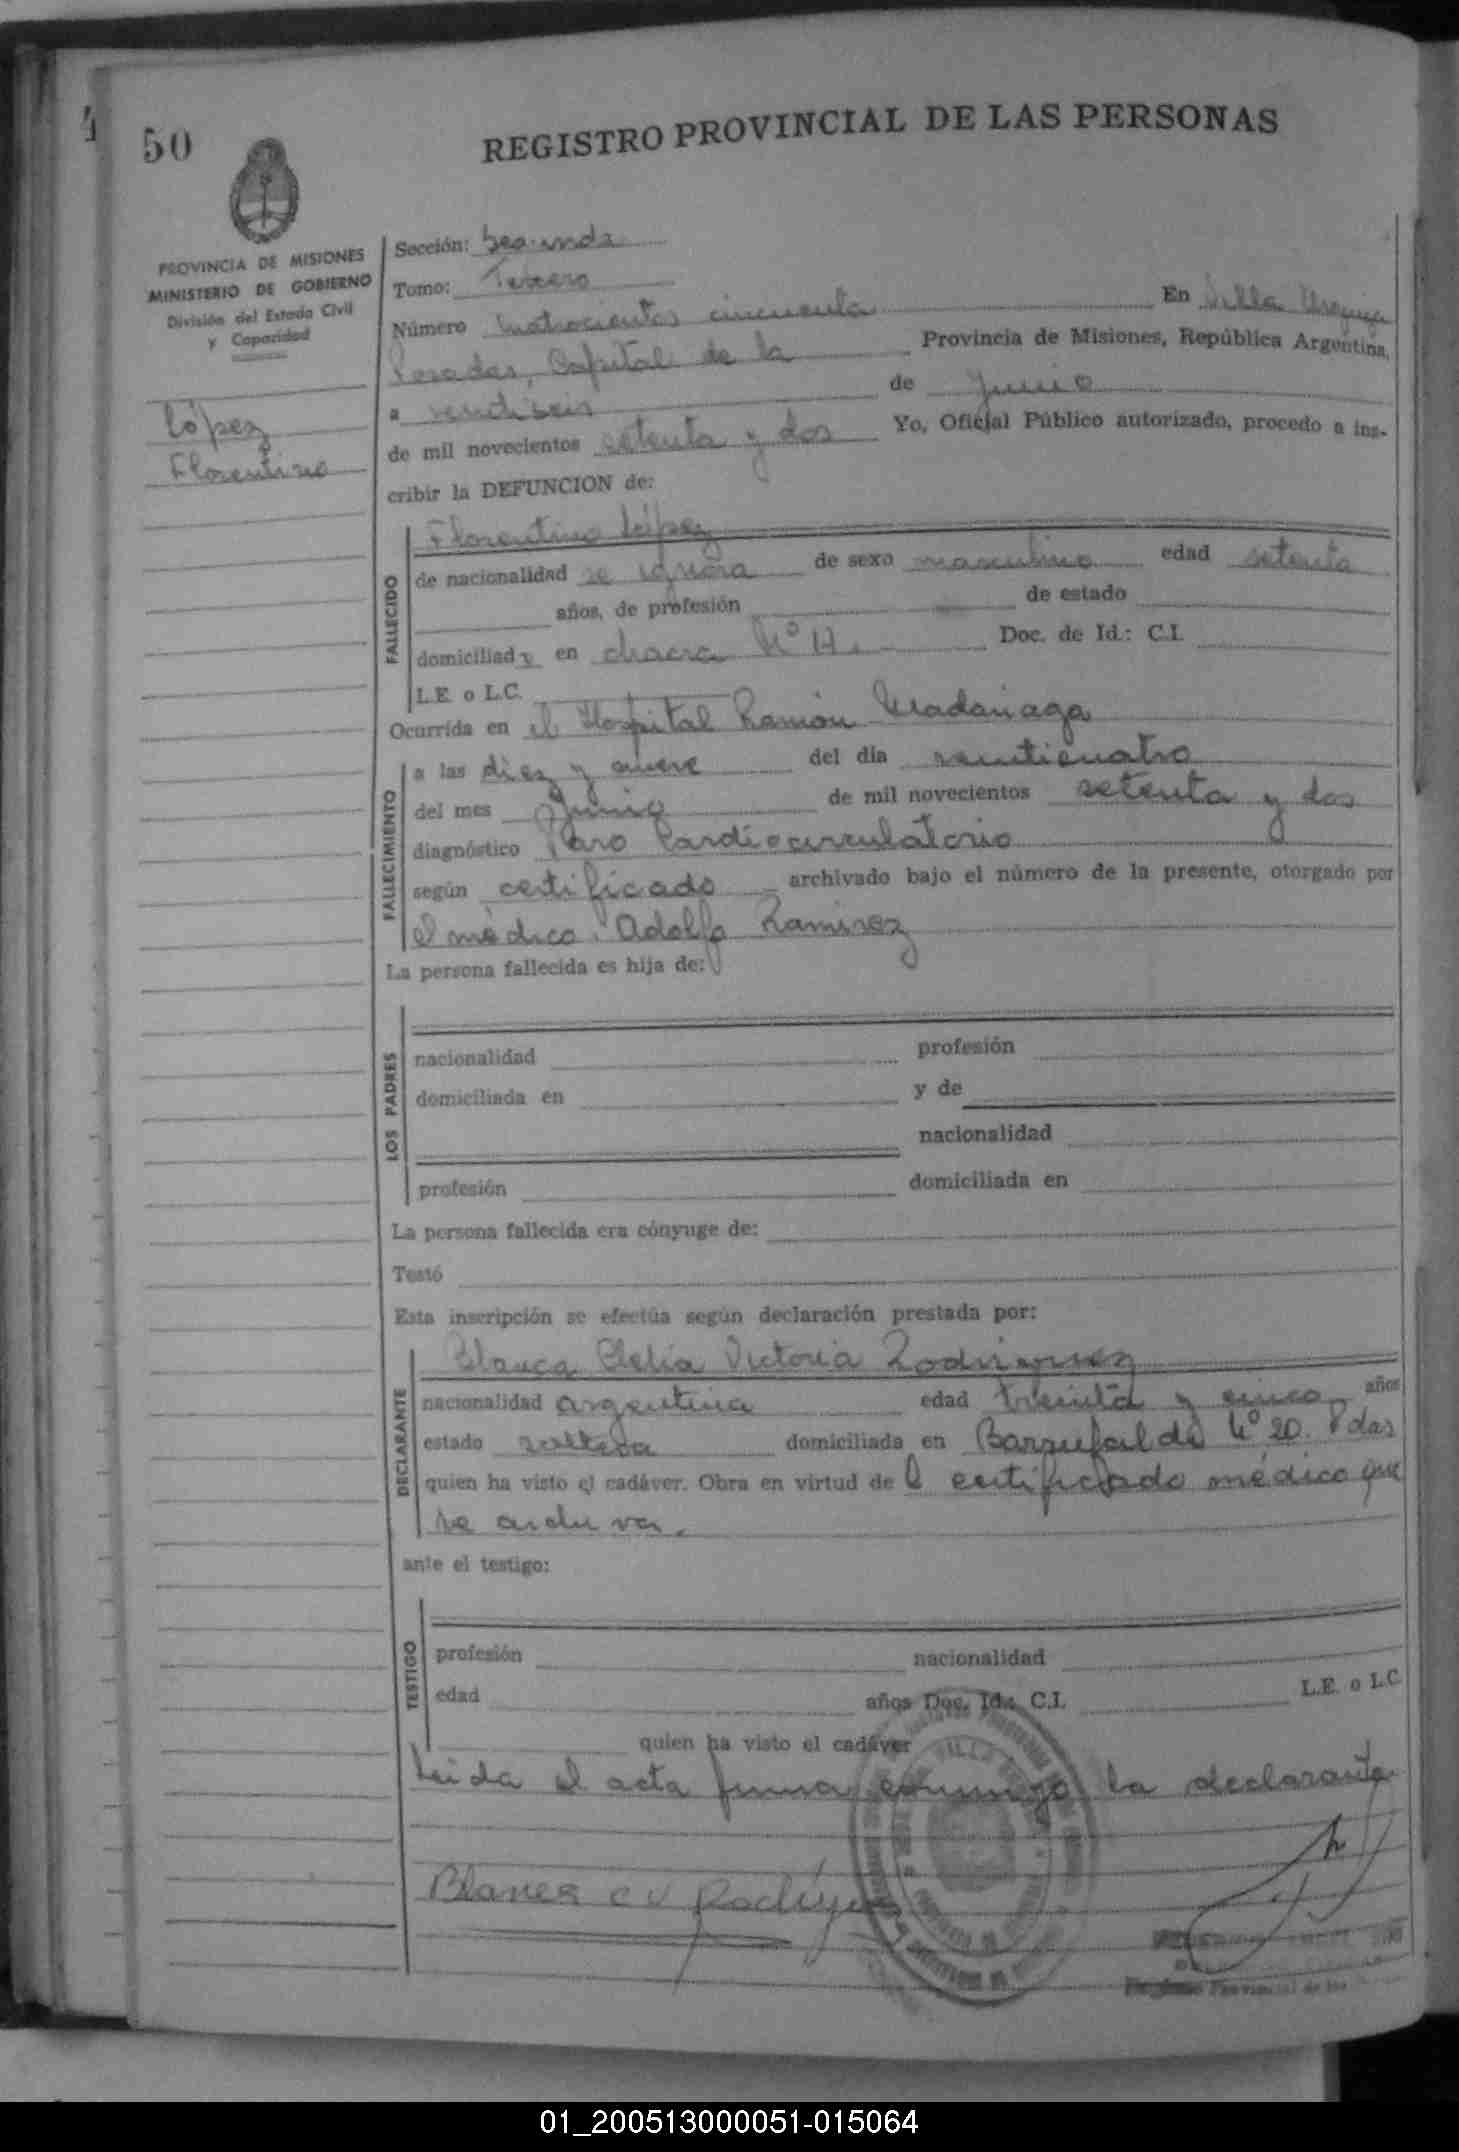 50
REGISTRO PROVINCIAL DE LAS PERSONAS
PROVINCIA DE MISIONES
MINISTERIO DE GOBIERNO
División del Estado Civil
y Capacidad
López
Florentino
Sección: Segunda
Tomo: Tercero
Número Cuatrocientos cincuenta En Villa Urquiza
Posadas, Capital de la Provincia de Misiones, República Argentina,
a veintiseis de Junio
de mil novecientos setenta y dos Yo, Oficial Público autorizado, procedo a ins-
cribir la DEFUNCION de:
FALLECIDO
Florentino López
de nacionalidad se ignora de sexo masculino edad setenta
años, de profesión de estado
domiciliado en chacra Nº Doc. de Id.: C.I.
L.E. o L.C.
Ocurrida en el Hospital Ramón Madariaga
FALLECIMIENTO
a las diez y nueve del día veinticuatro
del mes Junio de mil novecientos setenta y dos
diagnóstico Paro Cardiocirculatorio
según certificado archivado bajo el número de la presente, otorgado por
el médico: Adolfo Ramirez
La persona fallecida es hija de:
LOS PADRES
nacionalidad profesión
domiciliada en y de
nacionalidad
profesión domiciliada en
La persona fallecida era cónyuge de:
Testó
Esta inscripción se efectúa según declaración prestada por:
DECLARANTE
Blanca Clelia Victoria Rodriguez
nacionalidad argentina edad treinta y cinco años
estado soltera domiciliada en Nº 20. Pdas
quien ha visto el cadáver. Obra en virtud de l certificado médico que
se archiva.
ante el testigo:
TESTIGO
profesión nacionalidad
edad años Doc. Id.: C.I. L.E. o L.C.
quien ha visto el cadáver
Leida el acta firma conmigo la declarante
Blanca C V Rodriguez
Registro Provincial de las
01_200513000051-015064